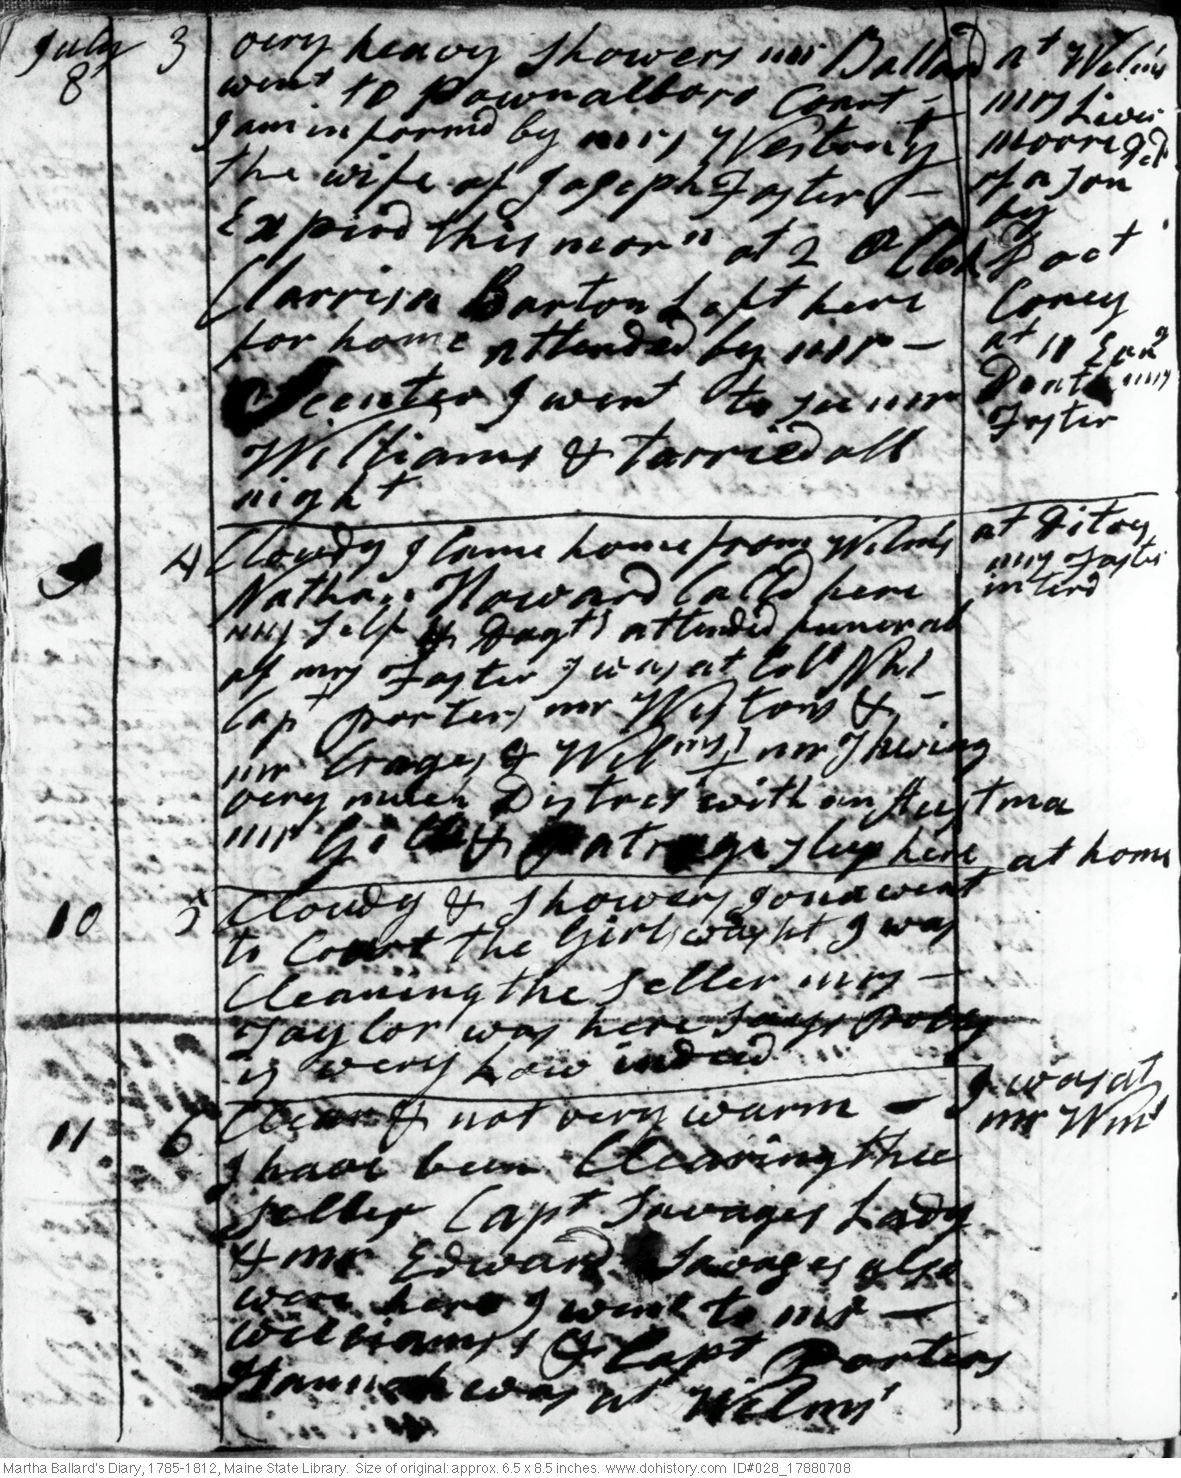 July 8 3 very heavy Showers mr Ballard
went to Pownalboro Court –
I am informd by mrs Weston yt
the wife of Joseph Foster –
Expird this morn at 2 O Clok
Clarrisa Barton Left here
for home attended by mr –
I went to see mr
Williams & tarried all
night
at Wilms
mrs
moore
of a son
by
Doct
Coney
at 11 Evng
Death mrs
Foster
9 4 Clowdy I Came home from Wilms
Nathan Howard Calld here
my self & Dagts attended funeral
of mrs Foster I was at Coll
Capt porters mr Westons & –
mr Crages & Wilms mr Thwing
very much Distrest with an Astma
mr & sleep here
at
mrs Foster
interd
at home
10 5 Clowdy & Showers Jona went
to Court the Girls washt I was
Cleaning the Seller mrs –
Taylor was here Says Polly
is very Low indeed
11 6 Clear & not very warm –
I have been Cleaning the
Seller Capt Savages Lady
& mr Edward Savages also
were here I went to mr –
Williams & Capt Porters
Hannah was at Wilms
I was at
mr Wms
Martha Ballard's Diary, 1785-1812, Maine State Library. Size of original: approx. 6.5 x 8.5 inches. www.dohistory.com ID#028_17880708